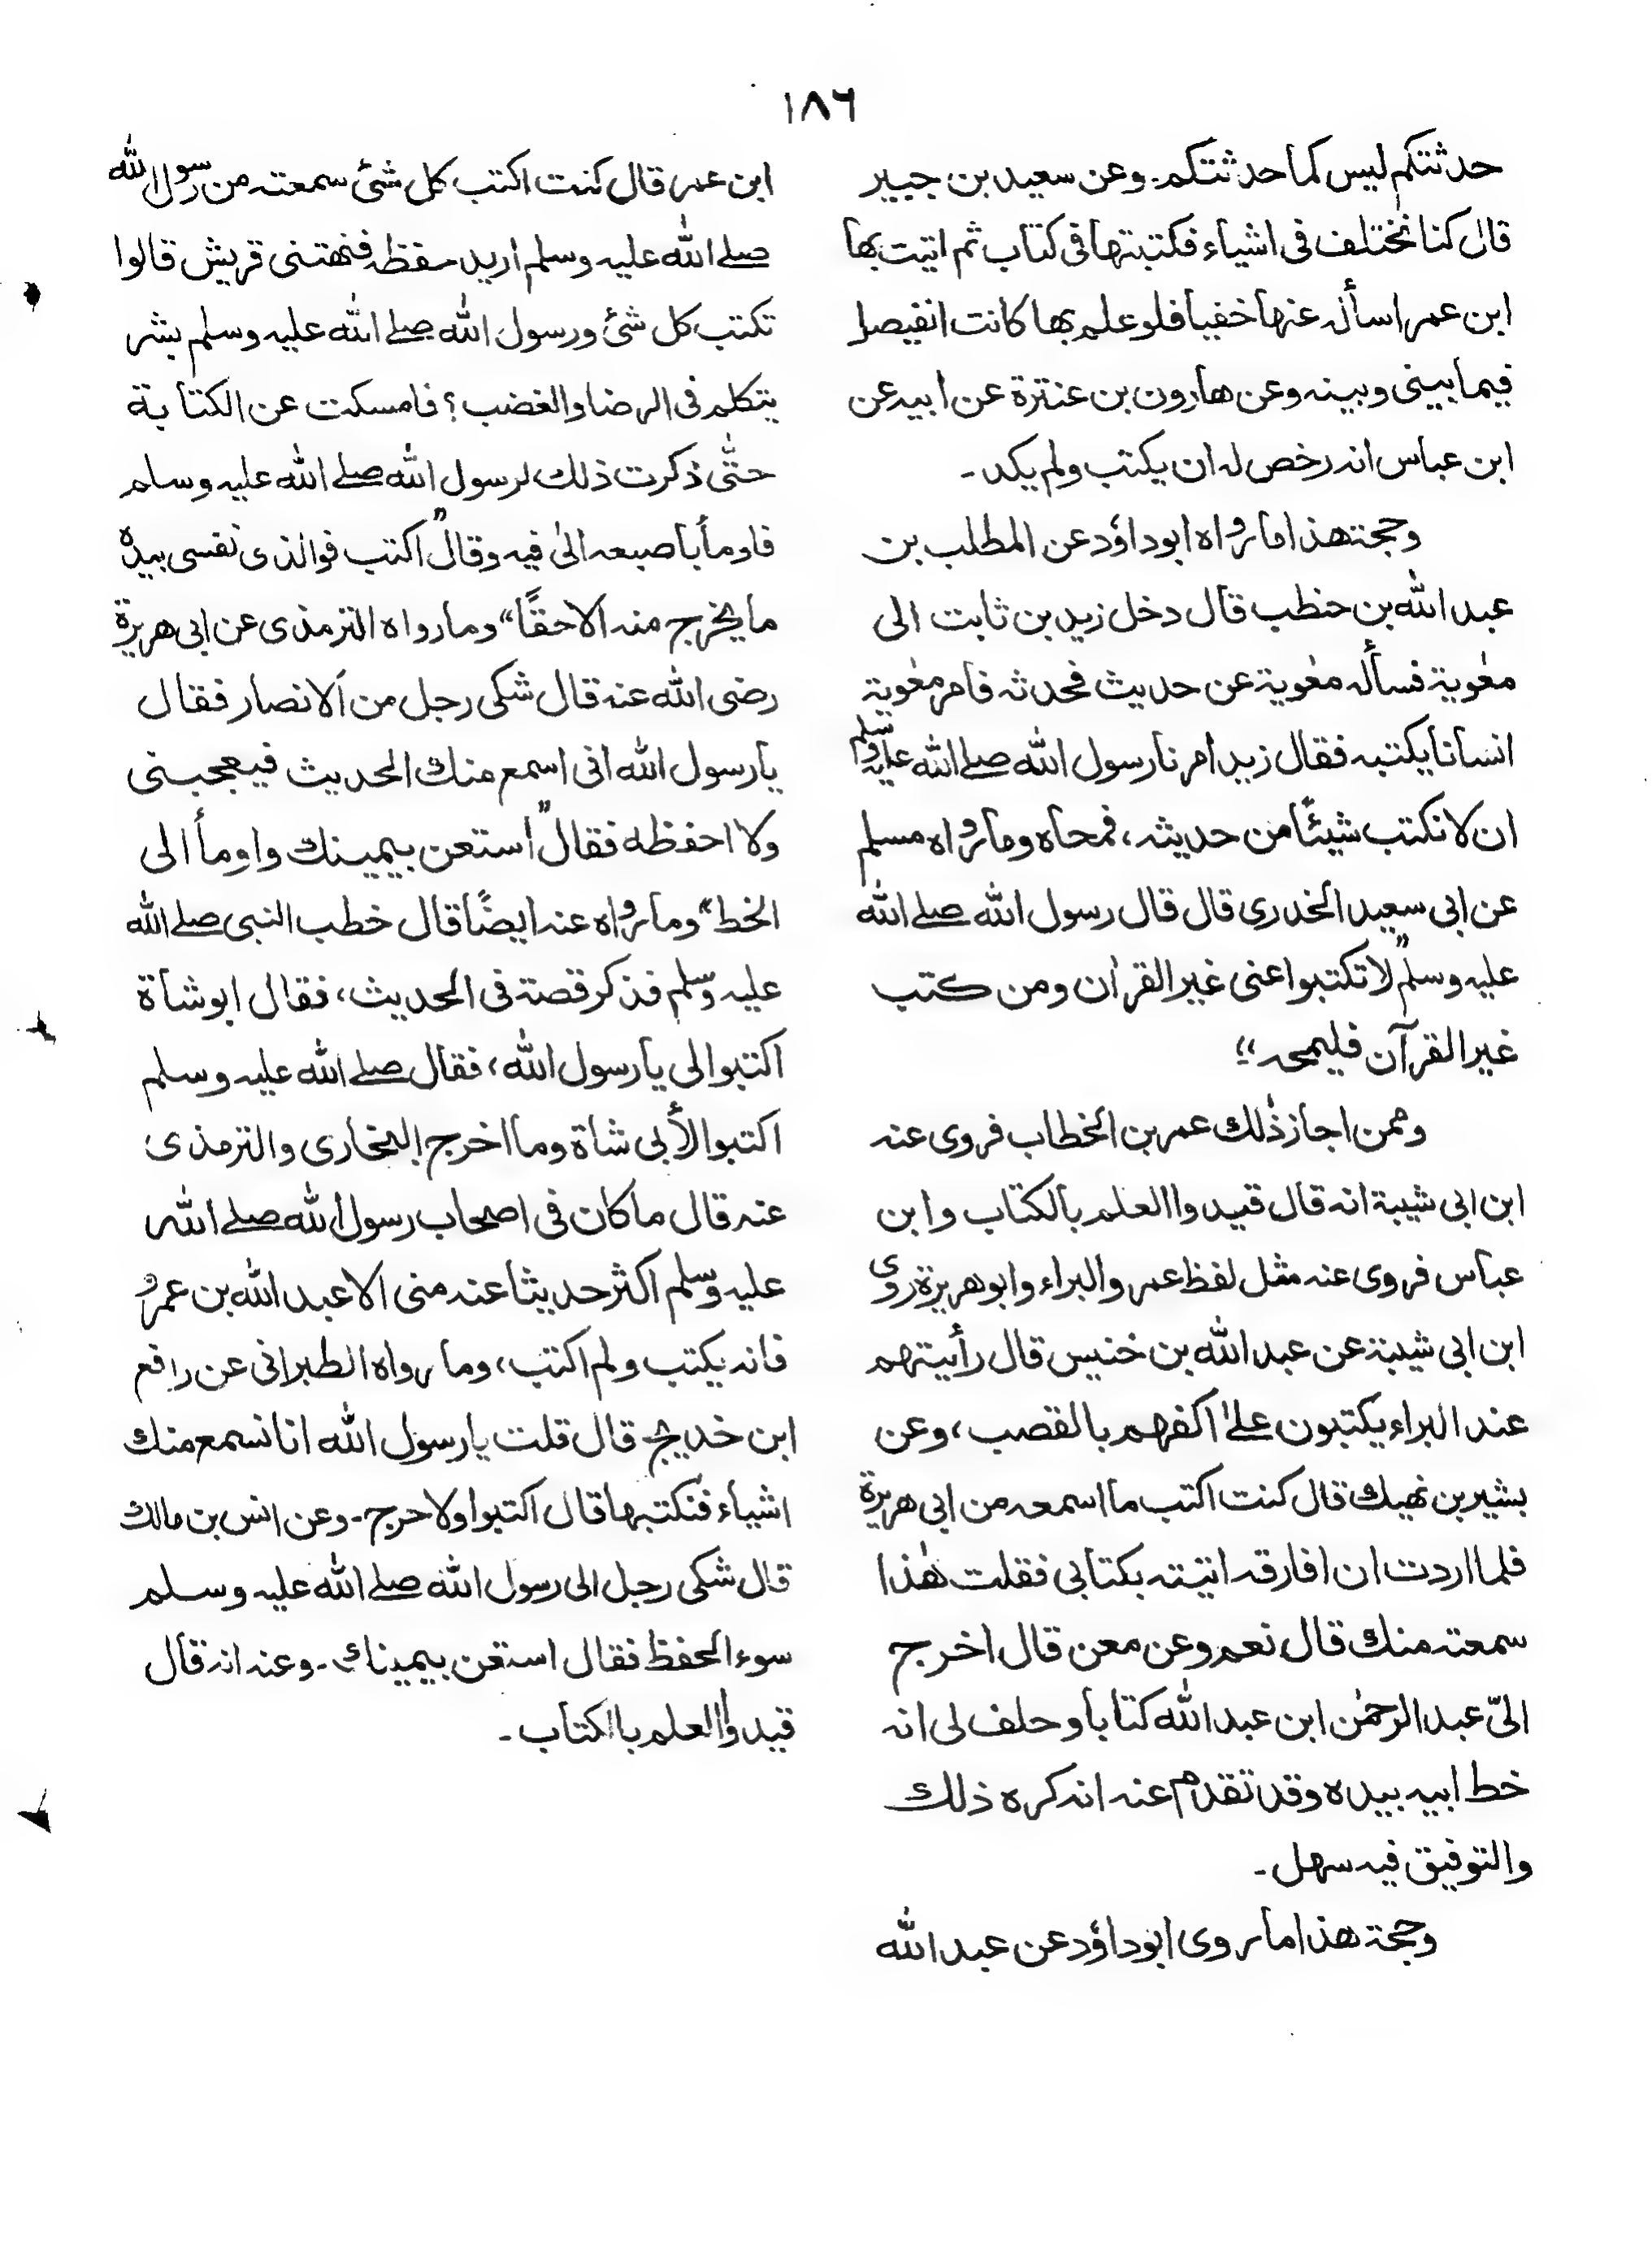 ١٨٦
حدثتكم ليس كما حدثتكم۔ وعن سعيد بن جبير
قال كنا نختلف فى اشياء فكتبتها فى كتاب ثم اتيت بها
ابن عمر اسأله عنها خفيا فلو علم بها كانت انفيصل
فيما بينى وبينه وعن هارون بن عنترة عن ابيه عن
ابن عباس انه رخص له ان يكتب ولم يكد۔
وحجة هذا ما رواه ابوداؤد عن المطلب بن
عبد الله بن حنطب قال دخل زيد بن ثابت الى
معٰوية فسأله معٰوية عن حديث فحدثه فامر معٰوية
انسانا يكتبه فقال زيد امرنا رسول الله صلے الله عليه وسلم
ان لا نكتب شيئًا من حديثه، فمحاه وما رواه مسلم
عن ابى سعيد الخدرى قال قال رسول الله صلے الله
عليه وسلم ”لا تكتبوا عنى غير القرآن ومن كتب
غير القرآن فليمحه“
وممن اجاز ذٰلك عمر بن الخطاب فروى عنه
ابن ابى شيبة انه قال قيدوا العلم بالكتاب وابن
عباس فروى عنه مثل لفظ عمر والبراء وابوهريرة روى
ابن ابى شيبة عن عبد الله بن خنيس قال رأيتهم
عند البراء يكتبون علىٰ اكفهم بالقصب، وعن
بشير بن نهيك قال كنت اكتب ما اسمعه من ابى هريرة
فلما اردت ان افارقه اتيته بكتابى فقلت هٰذا
سمعته منك قال نعم وعن معن قال اخرج
الىّ عبد الرحمٰن ابن عبد الله كتابا وحلف لى انه
خط ابيه بيده وقد تقدم عنه انه كره ذلك
والتوفيق فيه سهل۔
وحجة هذا ما روى ابوداؤد عن عبد الله
ابن عمر قال كنت اكتب كل شئ سمعته من رسول الله
صلے الله عليه وسلم اريد حفظه فنهتنى قريش قالوا
تكتب كل شئ ورسول الله صلے الله عليه وسلم بشر
يتكلم فى الرضا والغضب؟ فامسكت عن الكتابة
حتّٰى ذكرت ذلك لرسول الله صلے الله عليه وسلم
فاومأ باصبعه الىٰ فيه وقال ”اكتب فوالذى نفسى بيده
ما يخرج منه الا حقًا“ وما رواه الترمذى عن ابى هريرة
رضى الله عنه قال شكى رجل من الانصار فقال
يا رسول الله انى اسمع منك الحديث فيعجبنى
ولا احفظه فقال ”استعن بيمينك واومأ الى
الخط“ وما رواه عنه ايضًا قال خطب النبى صلے الله
عليه وسلم فذكر قصة فى الحديث، فقال ابو شاة
اكتبوا لى يا رسول الله، فقال صلے الله عليه وسلم
اكتبوا لأبى شاة وما اخرج البخارى والترمذى
عنه قال ما كان فى اصحاب رسول الله صلے الله
عليه وسلم اكثر حديثا عنه منى الا عبد الله بن عمرو
فانه يكتب ولم اكتب، وما رواه الطبرانى عن رافع
ابن خديج قال قلت يا رسول الله انا نسمع منك
اشياء فنكتبها قال اكتبوا ولا حرج۔ وعن انس بن مالك
قال شكى رجل الى رسول الله صلے الله عليه وسلم
سوء الحفظ فقال استعن بيمينك۔ وعنه انه قال
قيدوا العلم بالكتاب۔